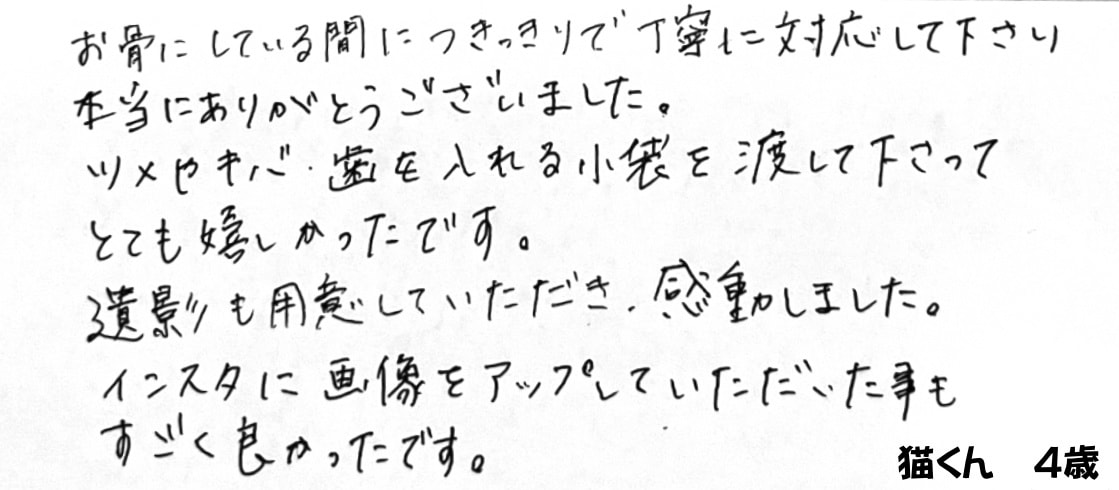 お骨にしている間につきっきりで丁寧に対応して下さり
本当にありがとうございました。
ツメやキバ・歯を入れる小袋を渡して下さって
とても嬉しかったです。
遺影も用意していただき、感動しました。
インスタに画像をアップしていただいた事も
すごく良かったです。
猫くん 4歳